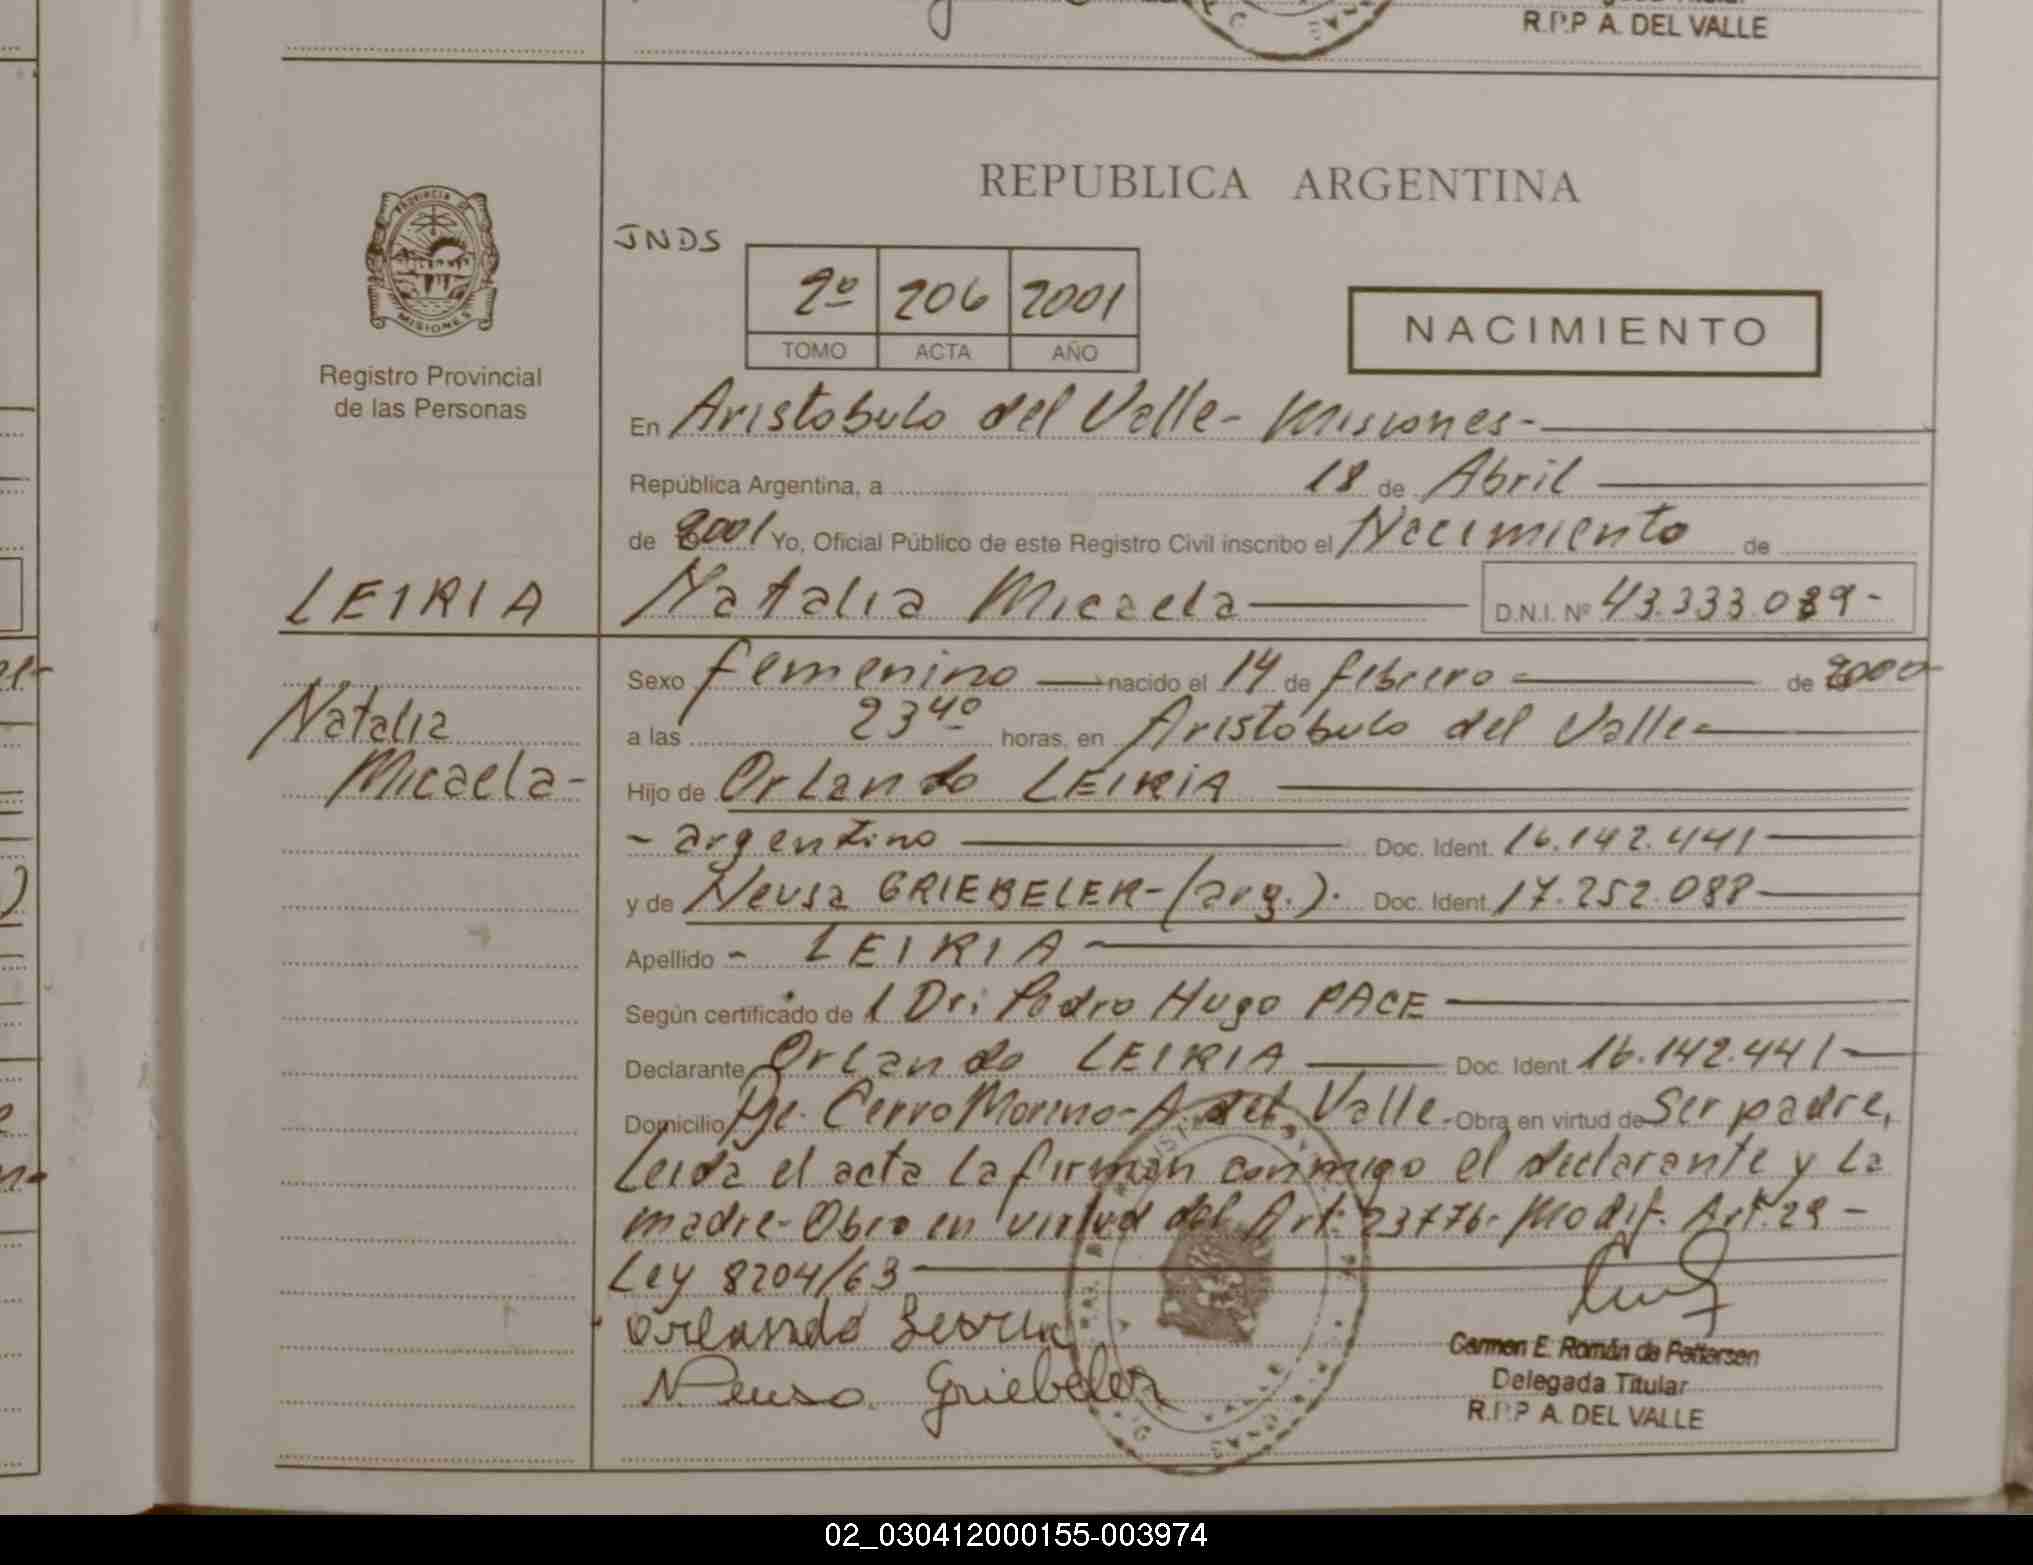 R.P.P A. DEL VALLE
REPUBLICA ARGENTINA
JNDS
2º 206 2001
TOMO ACTA AÑO
NACIMIENTO
PROVINCIA DE
MISIONES
Registro Provincial
de las Personas
En Aristobulo del Valle- Misiones-
República Argentina, a 18 de Abril
de 2001 Yo, Oficial Público de este Registro Civil inscribo el Nacimiento de
LEIRIA Natalia Micaela D.N.I. Nº 43.333.089-
Sexo femenino nacido el 14 de febrero de 2000
Natalia
a las 23 40 horas, en Aristobulo del Valle
Micaela-
Hijo de Orlando LEIRIA
- argentino Doc. Ident. 16.142.441
y de Neusa GRIEBELER-(arg.). Doc. Ident. 17.252.088
Apellido - LEIRIA
Según certificado de l Dr: Pedro Hugo PACE
Declarante Orlando LEIRIA Doc. Ident. 16.142.441
Domicilio Pje. Cerro Moreno-A. del Valle. Obra en virtud de Ser padre,
Leida el acta la firman conmigo el declarante y la
madre- Obro en virtud del Art: 23776- Modif. Art. 29-
Ley 8204/63
Orlando Leiria
Neusa Griebeler
Carmen E. Román de Pettersen
Delegada Titular
R.P.P A. DEL VALLE
02_030412000155-003974